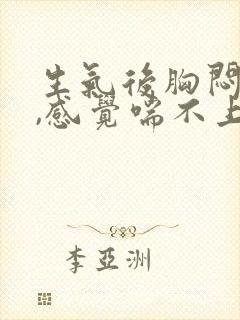 生氣後胸悶
,感覺喘不上
李亞洲